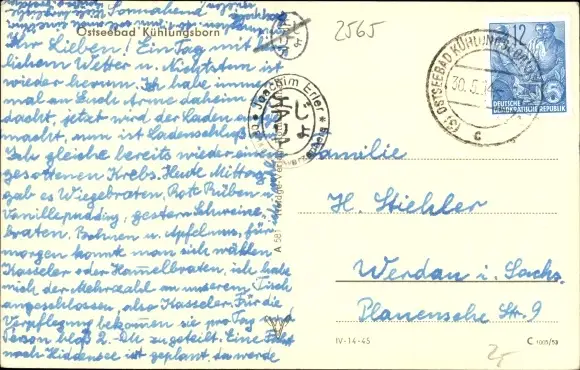 Ostseebad Kühlungsborn
Ihr Lieben! Ein Tag mit
lichem Wetter u. Nichtstun ist
wieder herum. Ich habe
mal an Euch Arme daheim
dacht, jetzt wird der Laden
macht, nun ist Ladenschluß.
Ich gleiche bereits wieder einem
gesottenen Krebs. Heute Mittag
gab es Wiegebraten, Rote Rüben u.
Vanillepudding, gestern Schweine-
braten, Bohnen u. Apfelmus, für
morgen konnt man sich wählen
Kasseler oder Hammelbraten, ich habe
mich der Mehrzahl an unserem Tisch
angeschlossen, also Kasseler. Für die
Verpflegung bekommen sie pro Tag und
Person bloß 2.- DM zugeteilt. Eine Fahrt
nach Hiddensee ist geplant, da werde
2565
Joachim Erler
12
5
DEUTSCHE
DEMOKRATISCHE REPUBLIK
OSTSEEBAD KÜHLUNGSBORN
30.5.
c
Familie
H. Stiehler
Werdau i. Sachs.
Plauensche Str. 9
A 581
IV-14-45
C